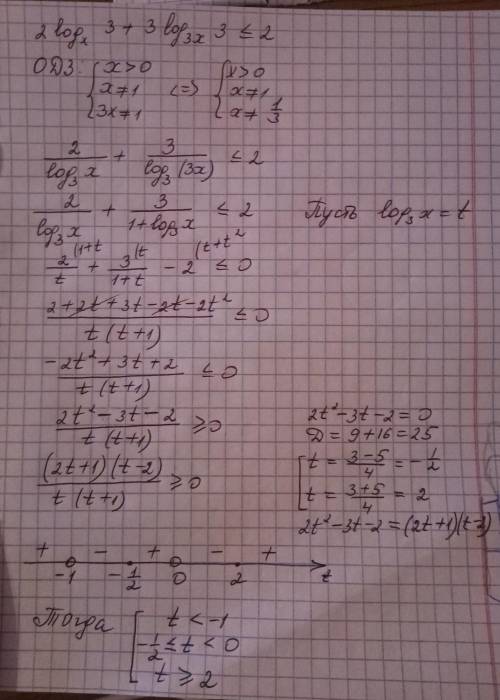 2 logₓ 3 + 3 log₃ₓ 3 ≤ 2
ОДЗ: { x > 0 <=> { x > 0
x ≠ 1 x ≠ 1
3x ≠ 1 x ≠ 1/3
2/log₃ x + 3/log₃ (3x) ≤ 2
2/log₃ x + 3/(1 + log₃ x) ≤ 2 Пусть log₃ x = t
2/t (1+t + 3/(1+t) (t - 2 (t+t² ≤ 0
(2 + 2t + 3t - 2t - 2t²)/(t (t+1)) ≤ 0
(-2t² + 3t + 2)/(t (t+1)) ≤ 0
(2t² - 3t - 2)/(t (t+1)) ≥ 0
((2t+1)(t-2))/(t (t+1)) ≥ 0
2t² - 3t - 2 = 0
D = 9 + 16 = 25
[ t = (3-5)/4 = -1/2
t = (3+5)/4 = 2
2t² - 3t - 2 = (2t+1)(t-2)
+ - + - +
-1 -1/2 0 2 t
Тогда [ t < -1
-1/2 ≤ t < 0
t ≥ 2